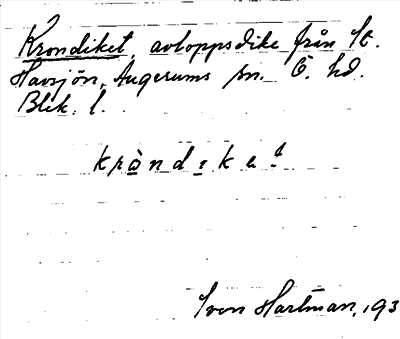 Krondiket, avloppsdike från St.
Havsjön, Augerums sn. Ö. hd.
Blek. l.
krånd ı ke t
Iven Hartman, 193